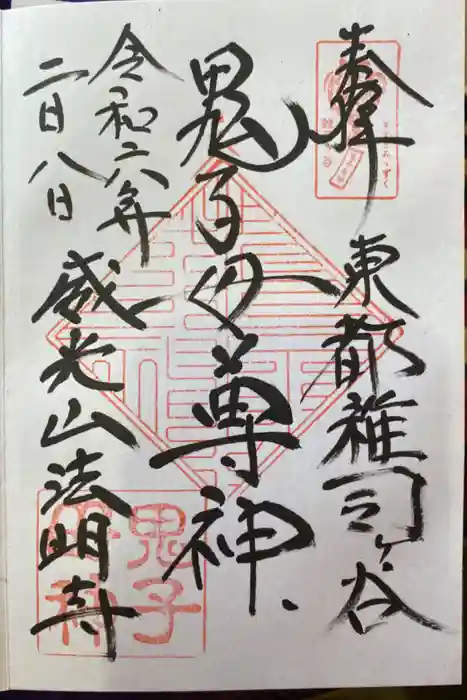 奉拝
東都雑司ヶ谷
鬼子母尊神
令和六年
二月八日
威光山法明寺
鬼子
母神